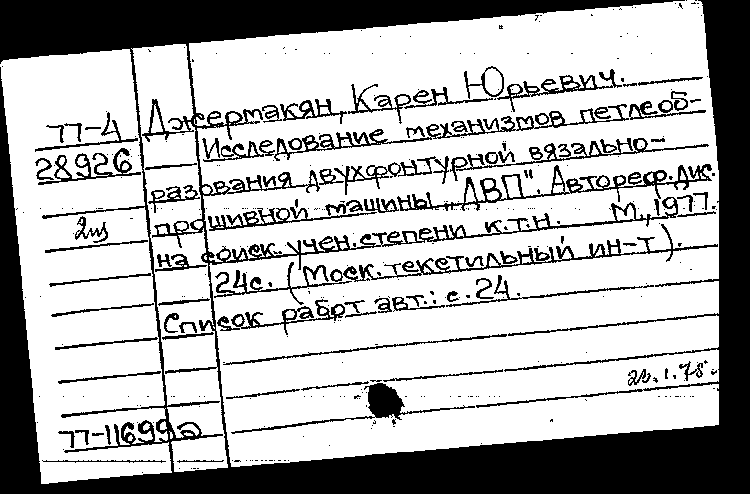 77-4
28926
2
Джермакян, Карен Юрьевич.
Исследование механизмов петлеоб-
разования двухфонтурной вязально-
прошивной машины „ДВП". Автореф. дис.
на соиск. учен. степени к.т.н. М., 1977.
24с. (Моск. текстильный ин-т).
Список работ авт.: с. 24.
77-11699